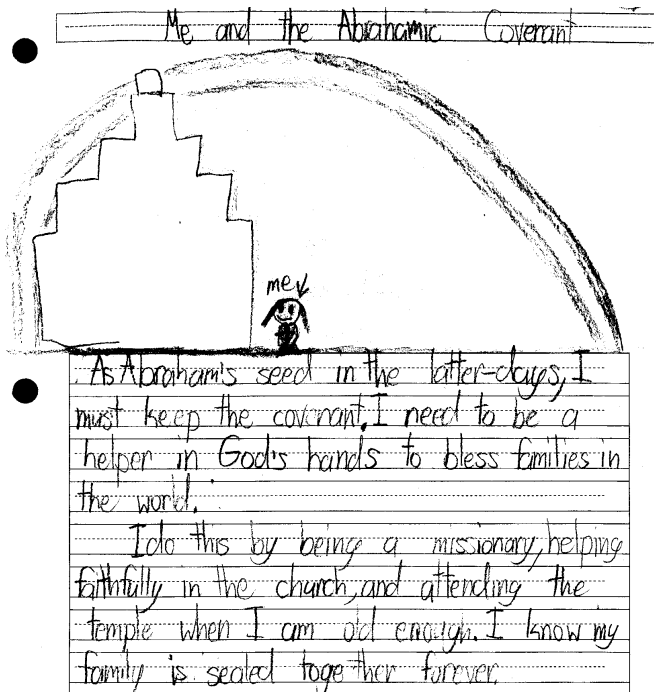 Me and the Abrahamic Covenant
me
As Abraham's seed in the latter-days, I
must keep the covenant. I need to be a
helper in God's hands to bless families in
the world.
I do this by being a missionary, helping
faithfully in the church, and attending the
temple when I am old enough. I know my
family is sealed together forever.